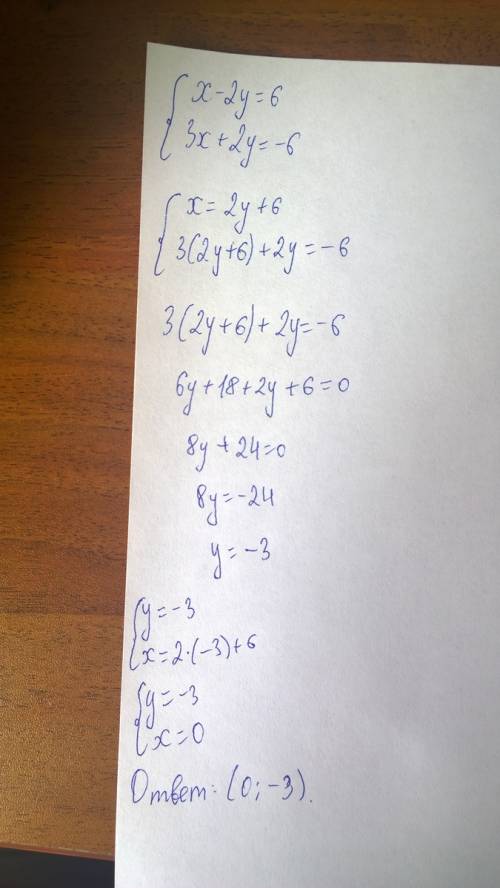 { x-2y=6
3x+2y=-6
{ x=2y+6
3(2y+6)+2y=-6
3(2y+6)+2y=-6
6y+18+2y+6=0
8y+24=0
8y=-24
y=-3
{ y=-3
x=2·(-3)+6
{ y=-3
x=0
Ответ: (0; -3).